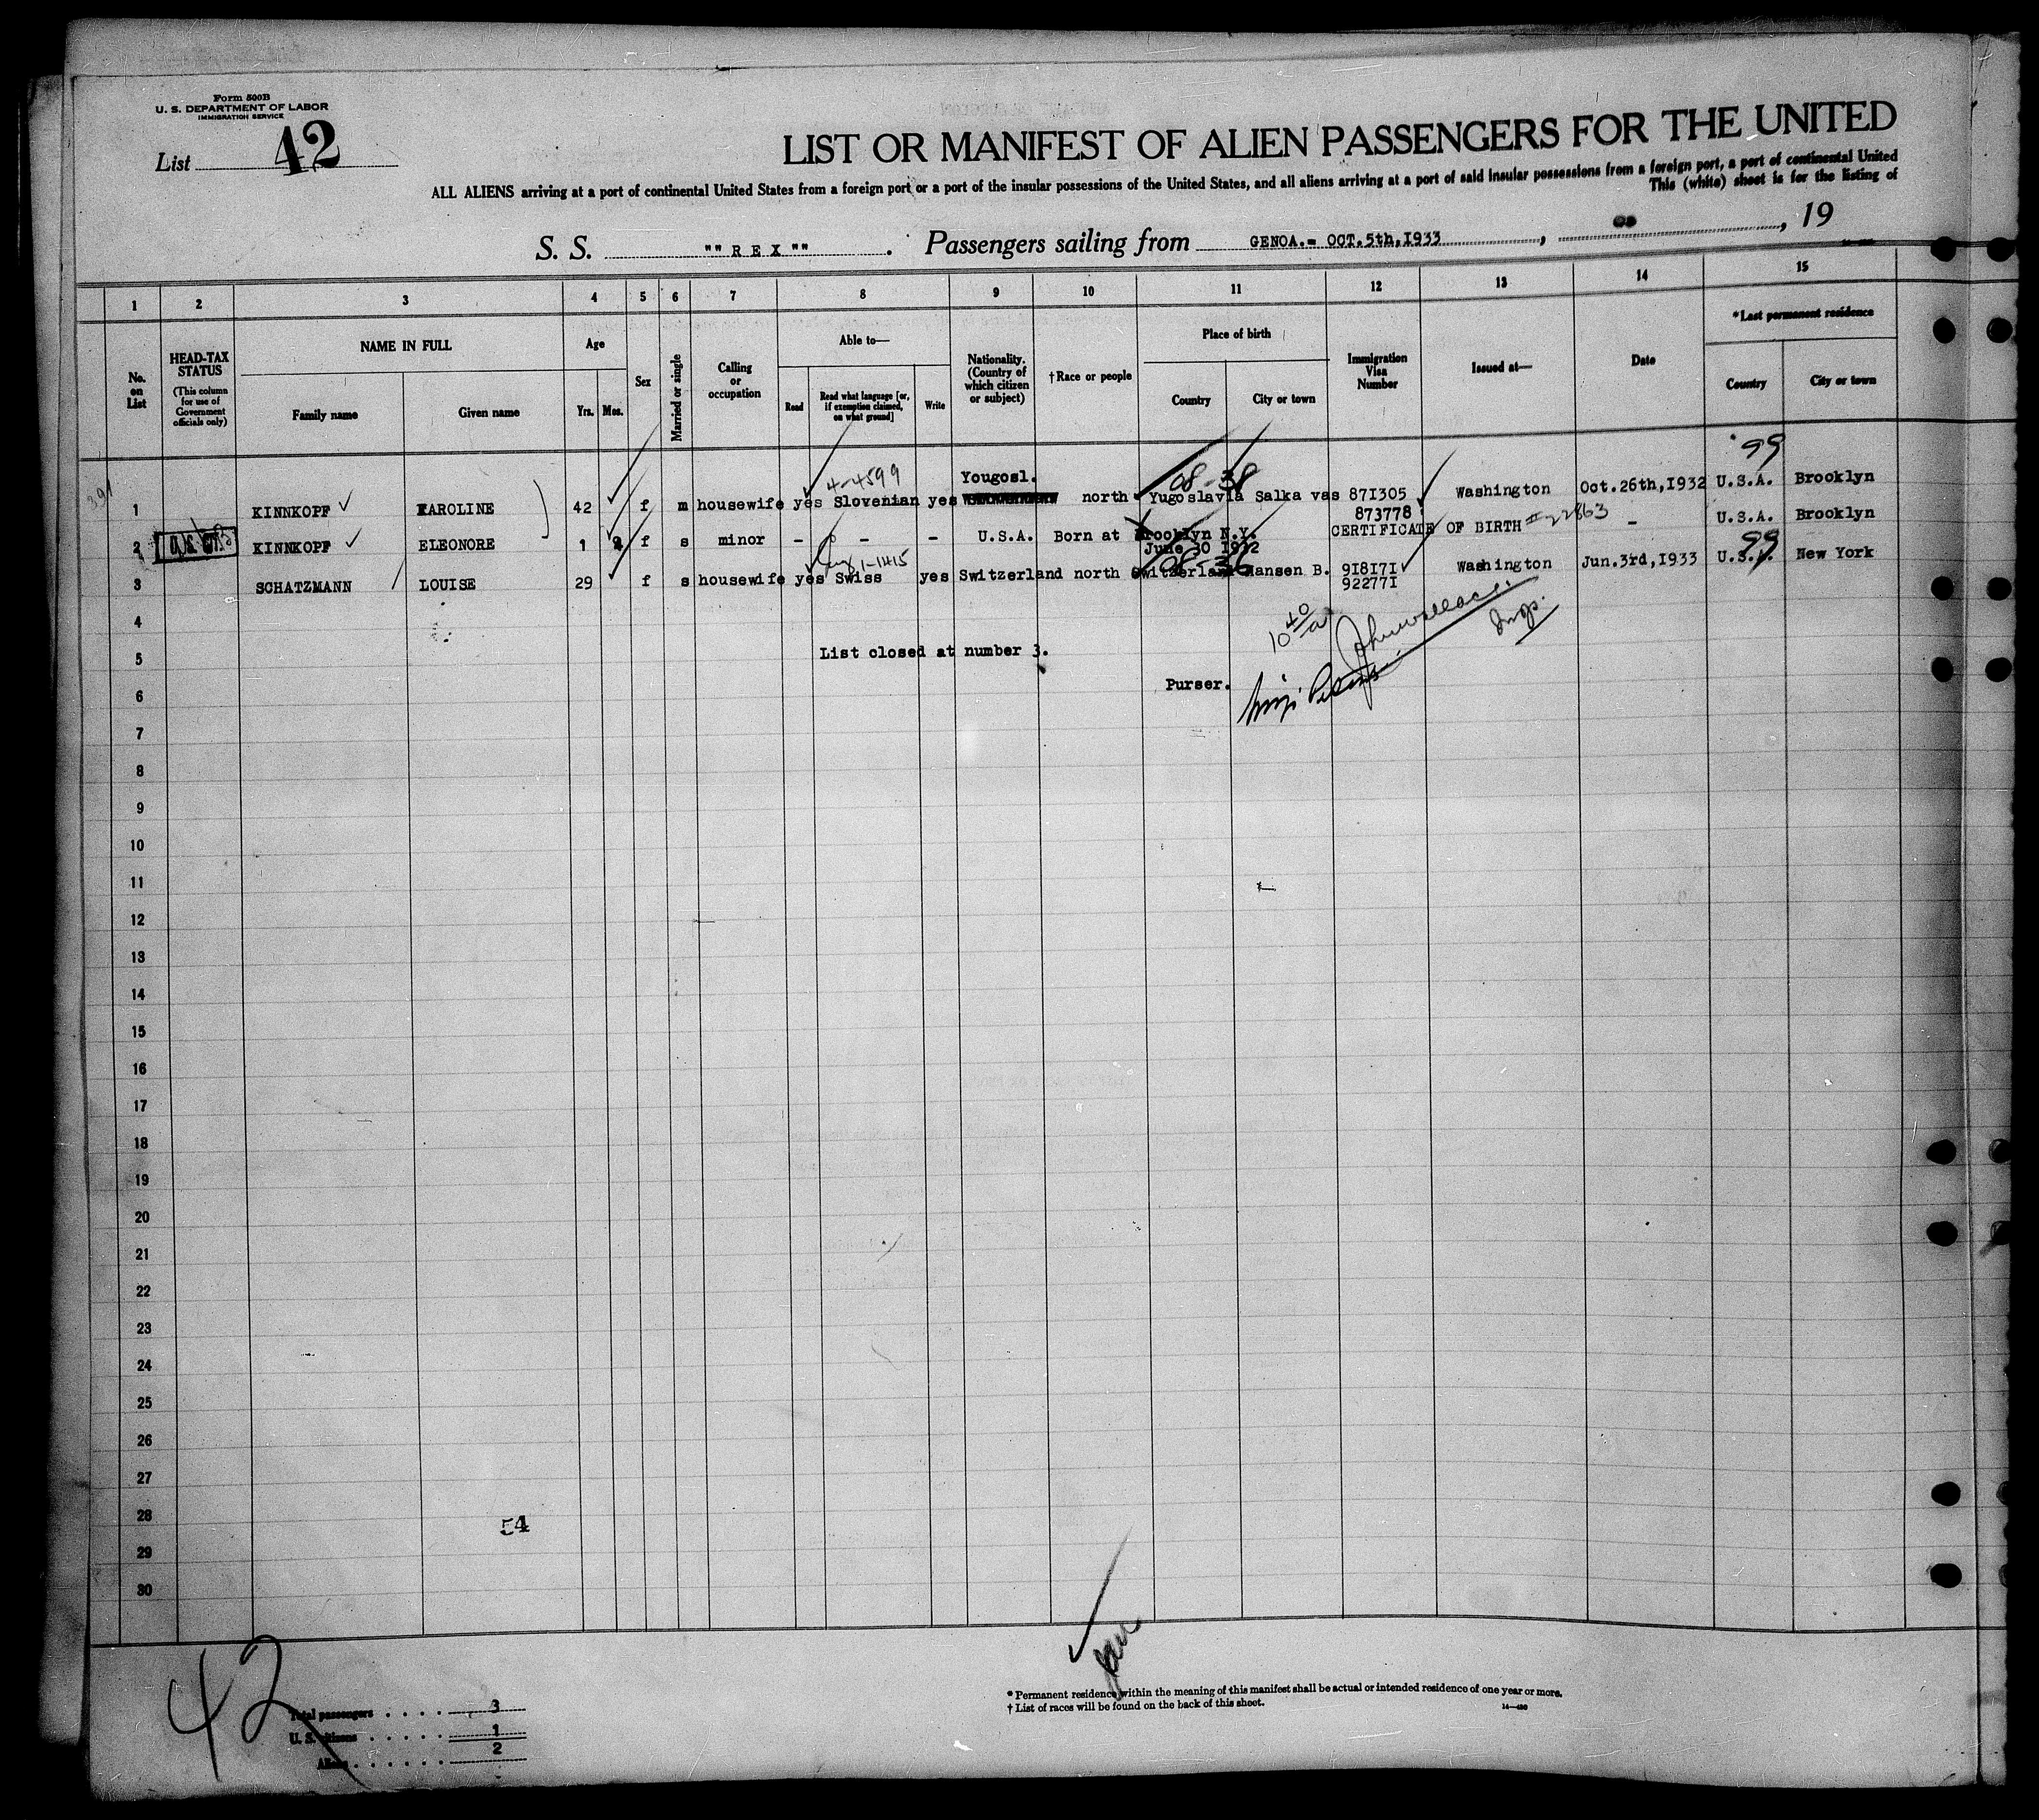 Form 500B
U. S. DEPARTMENT OF LABOR
IMMIGRATION SERVICE
List 42
LIST OR MANIFEST OF ALIEN PASSENGERS FOR THE UNITED
ALL ALIENS arriving at a port of continental United States from a foreign port or a port of the insular possessions of the United States, and all aliens arriving at a port of said insular possessions from a foreign port, a port of continental United
This (white) sheet is for the listing of
S. S. "" R E X "" . Passengers sailing from GENOA.- OCT.5th,I933 , , 19
1 2 3 4 5 6 7 8 9 10 11 12 13 14 15
No. on List
HEAD-TAX STATUS (This column for use of Government officials only)
NAME IN FULL
Family name
Given name
Age
Yrs. Mos.
Sex
Married or single
Calling or occupation
Able to—
Read
Read what language [or, if exemption claimed, on what ground]
Write
Nationality. (Country of which citizen or subject)
†Race or people
Place of birth
Country
City or town
Immigration Visa Number
Issued at—
Date
*Last permanent residence
Country
City or town
4-4599
08-38
99
Yougosl.
1 KINNKOPF KAROLINE 42 f m housewife yes Slovenian yes north Yugoslavia Salka vas 87I305 Washington Oct.26th,I932 U.S.A. Brooklyn
873778
2 KINNKOPF ELEONORE 1 f s minor - - - U.S.A. Born at Brooklyn N.Y. CERTIFICATE OF BIRTH #22863 - U.S.A. Brooklyn
June 30 1932
1-1415
08-36
99
3 SCHATZMANN LOUISE 29 f s housewife yes Swiss yes Switzerland north Switzerland Hansen B. 9I8I7I Washington Jun.3rd,I933 U.S.A. New York
92277I
4
5 List closed at number 3.
10 40/a
Insp.
6 Purser.
7
8
9
10
11
12
13
14
15
16
17
18
19
20
21
22
23
24
25
26
27
28 54
29
30
42
Total passengers . . . . 3
U. S. citizens . . . . . 1
Aliens . . . . . . 2
* Permanent residence within the meaning of this manifest shall be actual or intended residence of one year or more.
† List of races will be found on the back of this sheet.
14—480